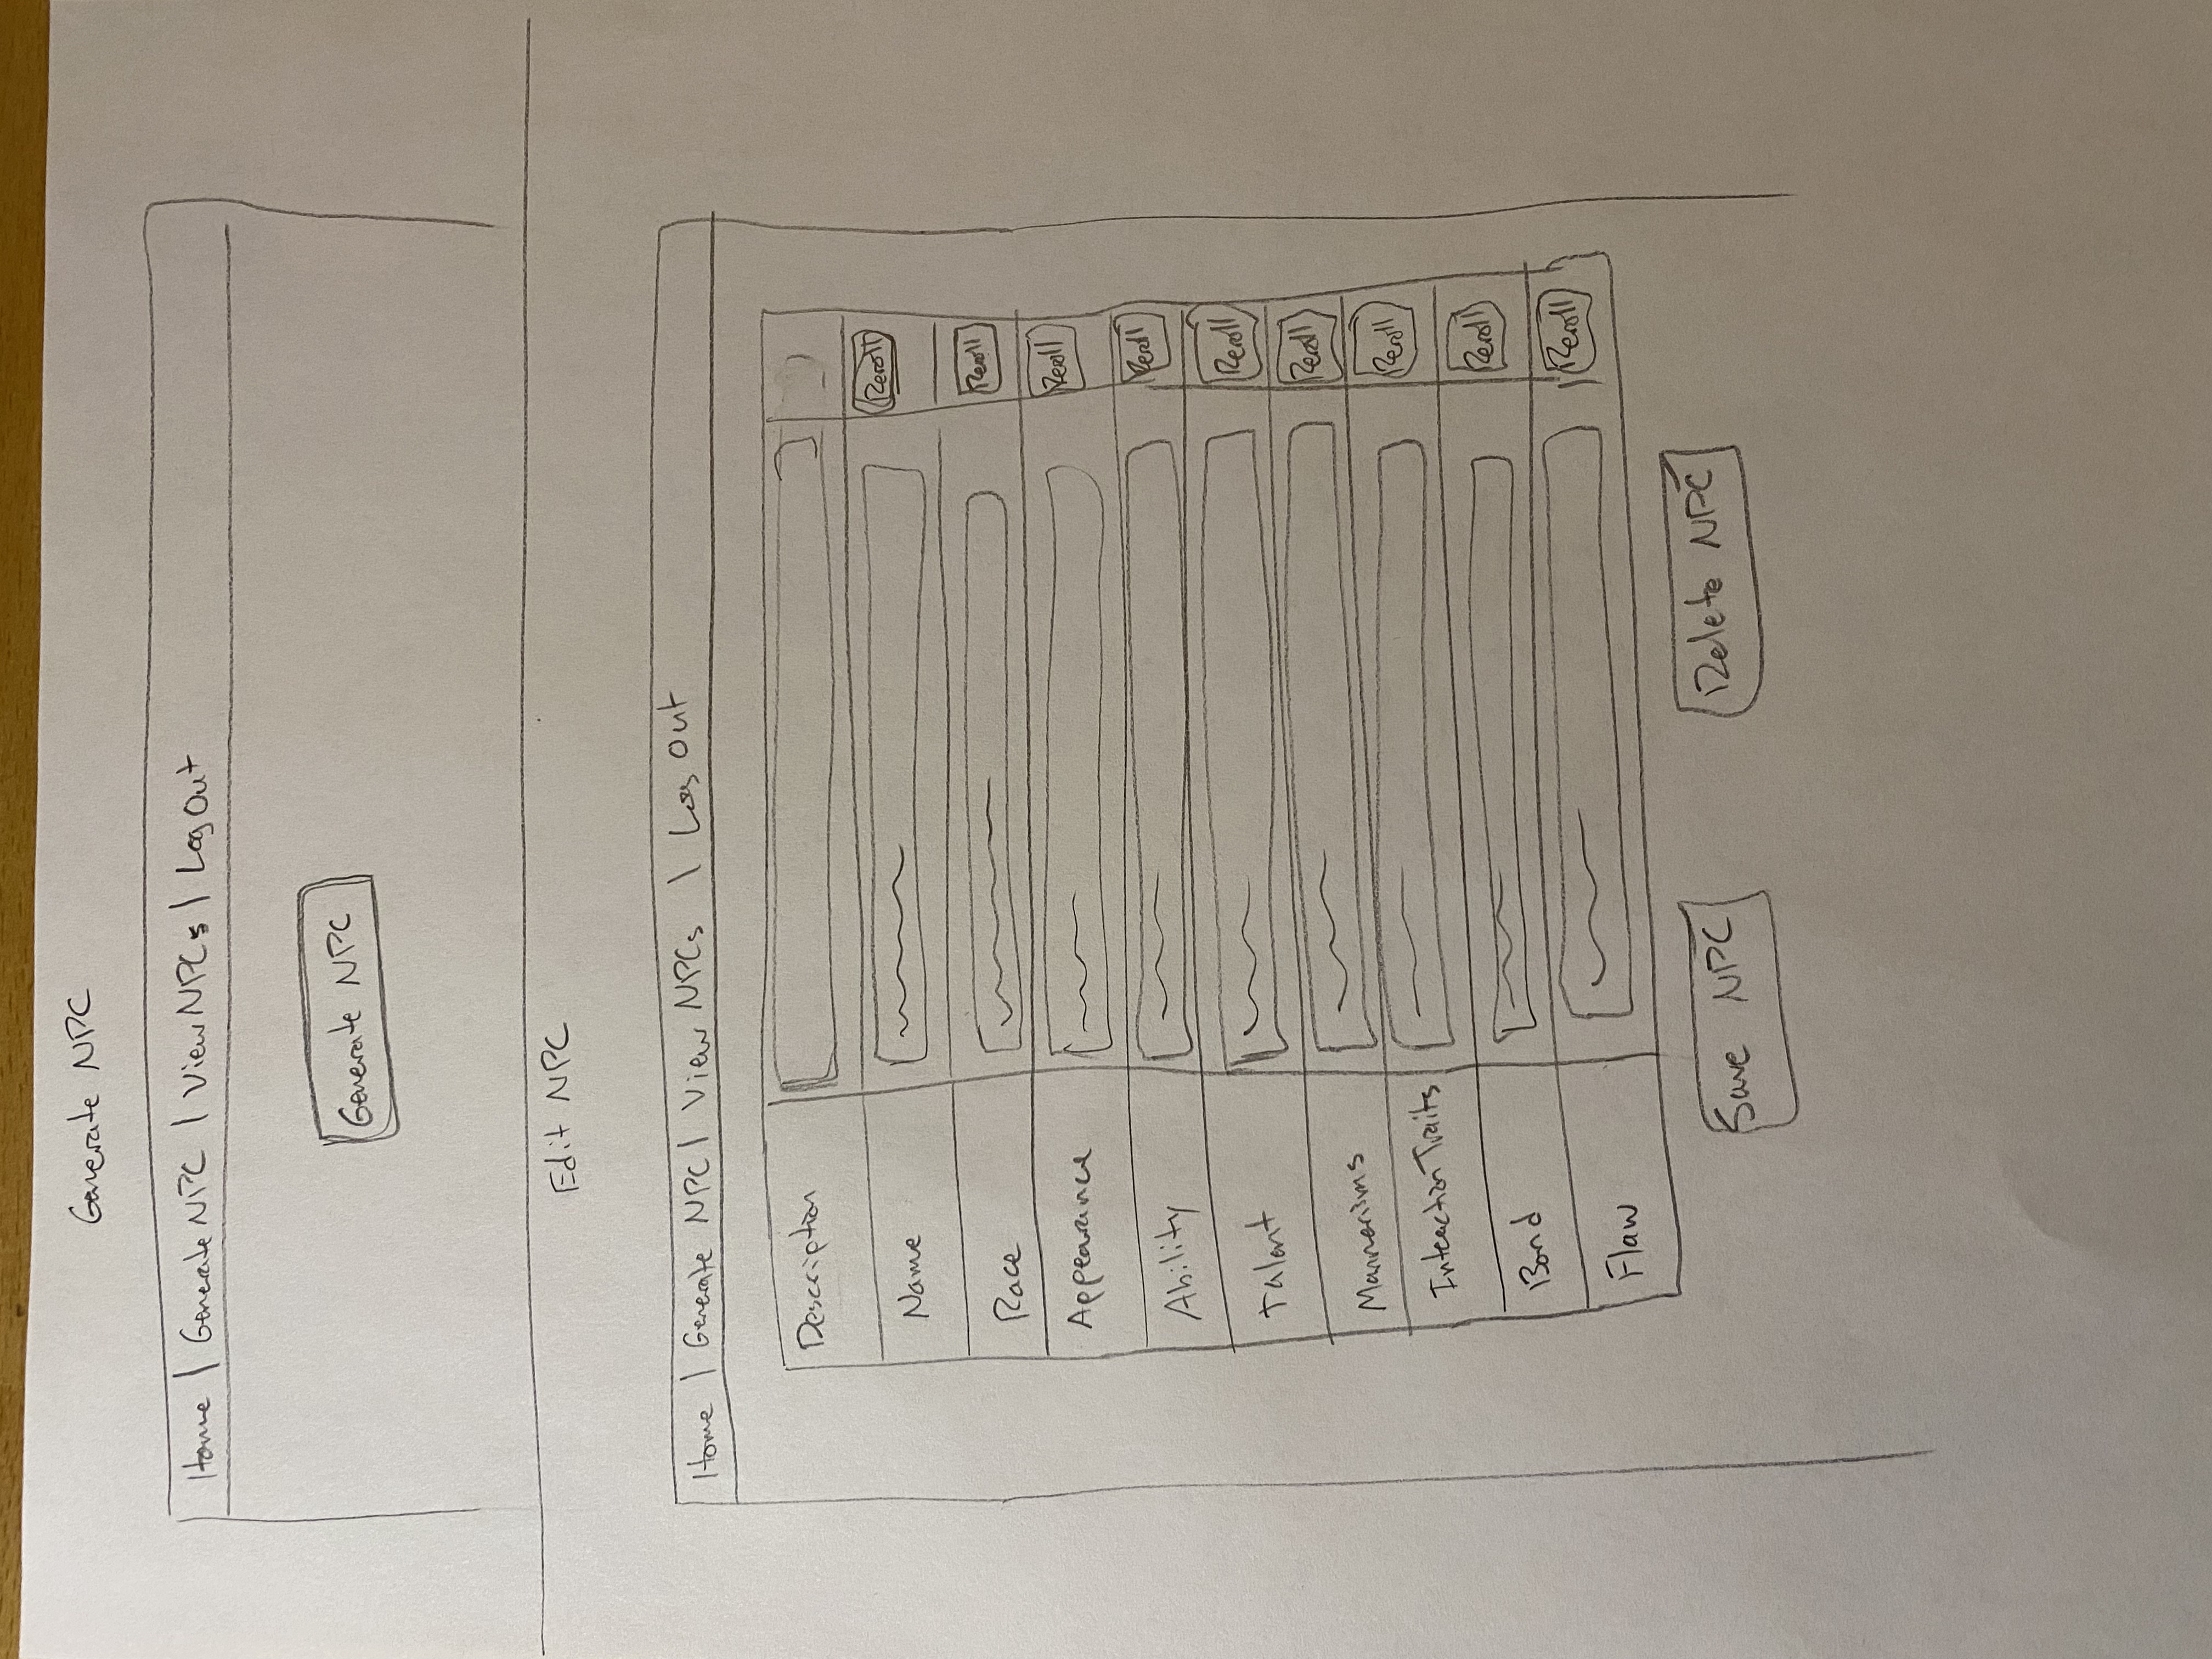 Generate NPC
Home | Generate NPC | View NPCs | Log Out
Generate NPC
Edit NPC
Home | Generate NPC | View NPCs | Log Out
Description
Name Reroll
Race Reroll
Appearance Reroll
Ability Reroll
Talent Reroll
Mannerisms Reroll
Interaction Traits Reroll
Bond Reroll
Flaw Reroll
Save NPC Delete NPC